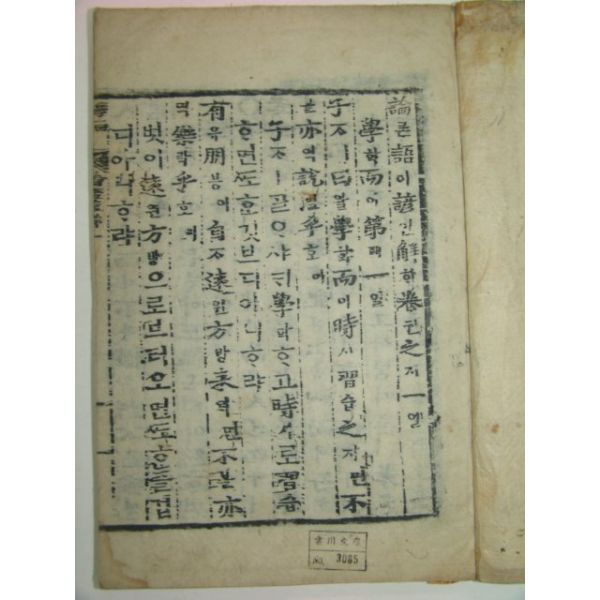 論론語어諺언解해卷권之지一일
學학而이第뎨一일
子ᄌᆞㅣ曰왈學학而이時시習습之지면不
블亦역說열乎호아
子ᄌᆞㅣᄀᆞᆯᄋᆞ샤ᄃᆡ學학ᄒᆞ고時시로習습
ᄒᆞ면ᄯᅩᄒᆞᆫ깃브디아니ᄒᆞ랴
有유朋붕이自ᄌᆞ遠원方방來ᄅᆡ면不블亦
역樂락乎호아
벗이遠원方방으로브터오면ᄯᅩᄒᆞᆫ즐겁
디아니ᄒᆞ랴
No. 3085